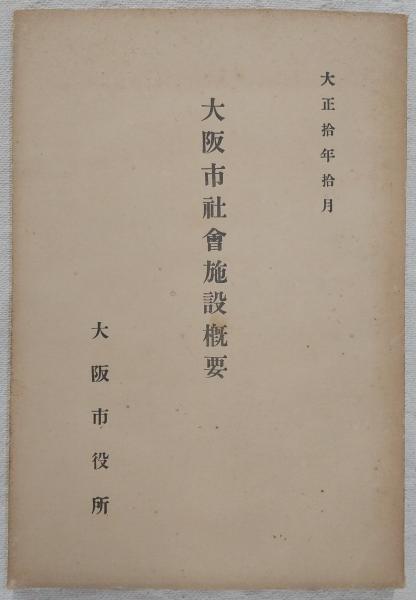 大正拾年拾月
大阪市社會施設槪要
大阪市役所